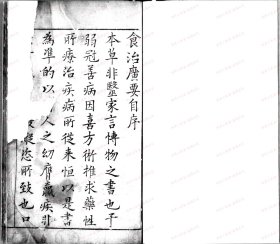 食治廣要自序
本草非醫家言博物之書也予
弱冠善病因喜方術推求藥性
所療治疾病所從来恒以是書
為準的以 人之幼膺羸疾非
 慾所致也口